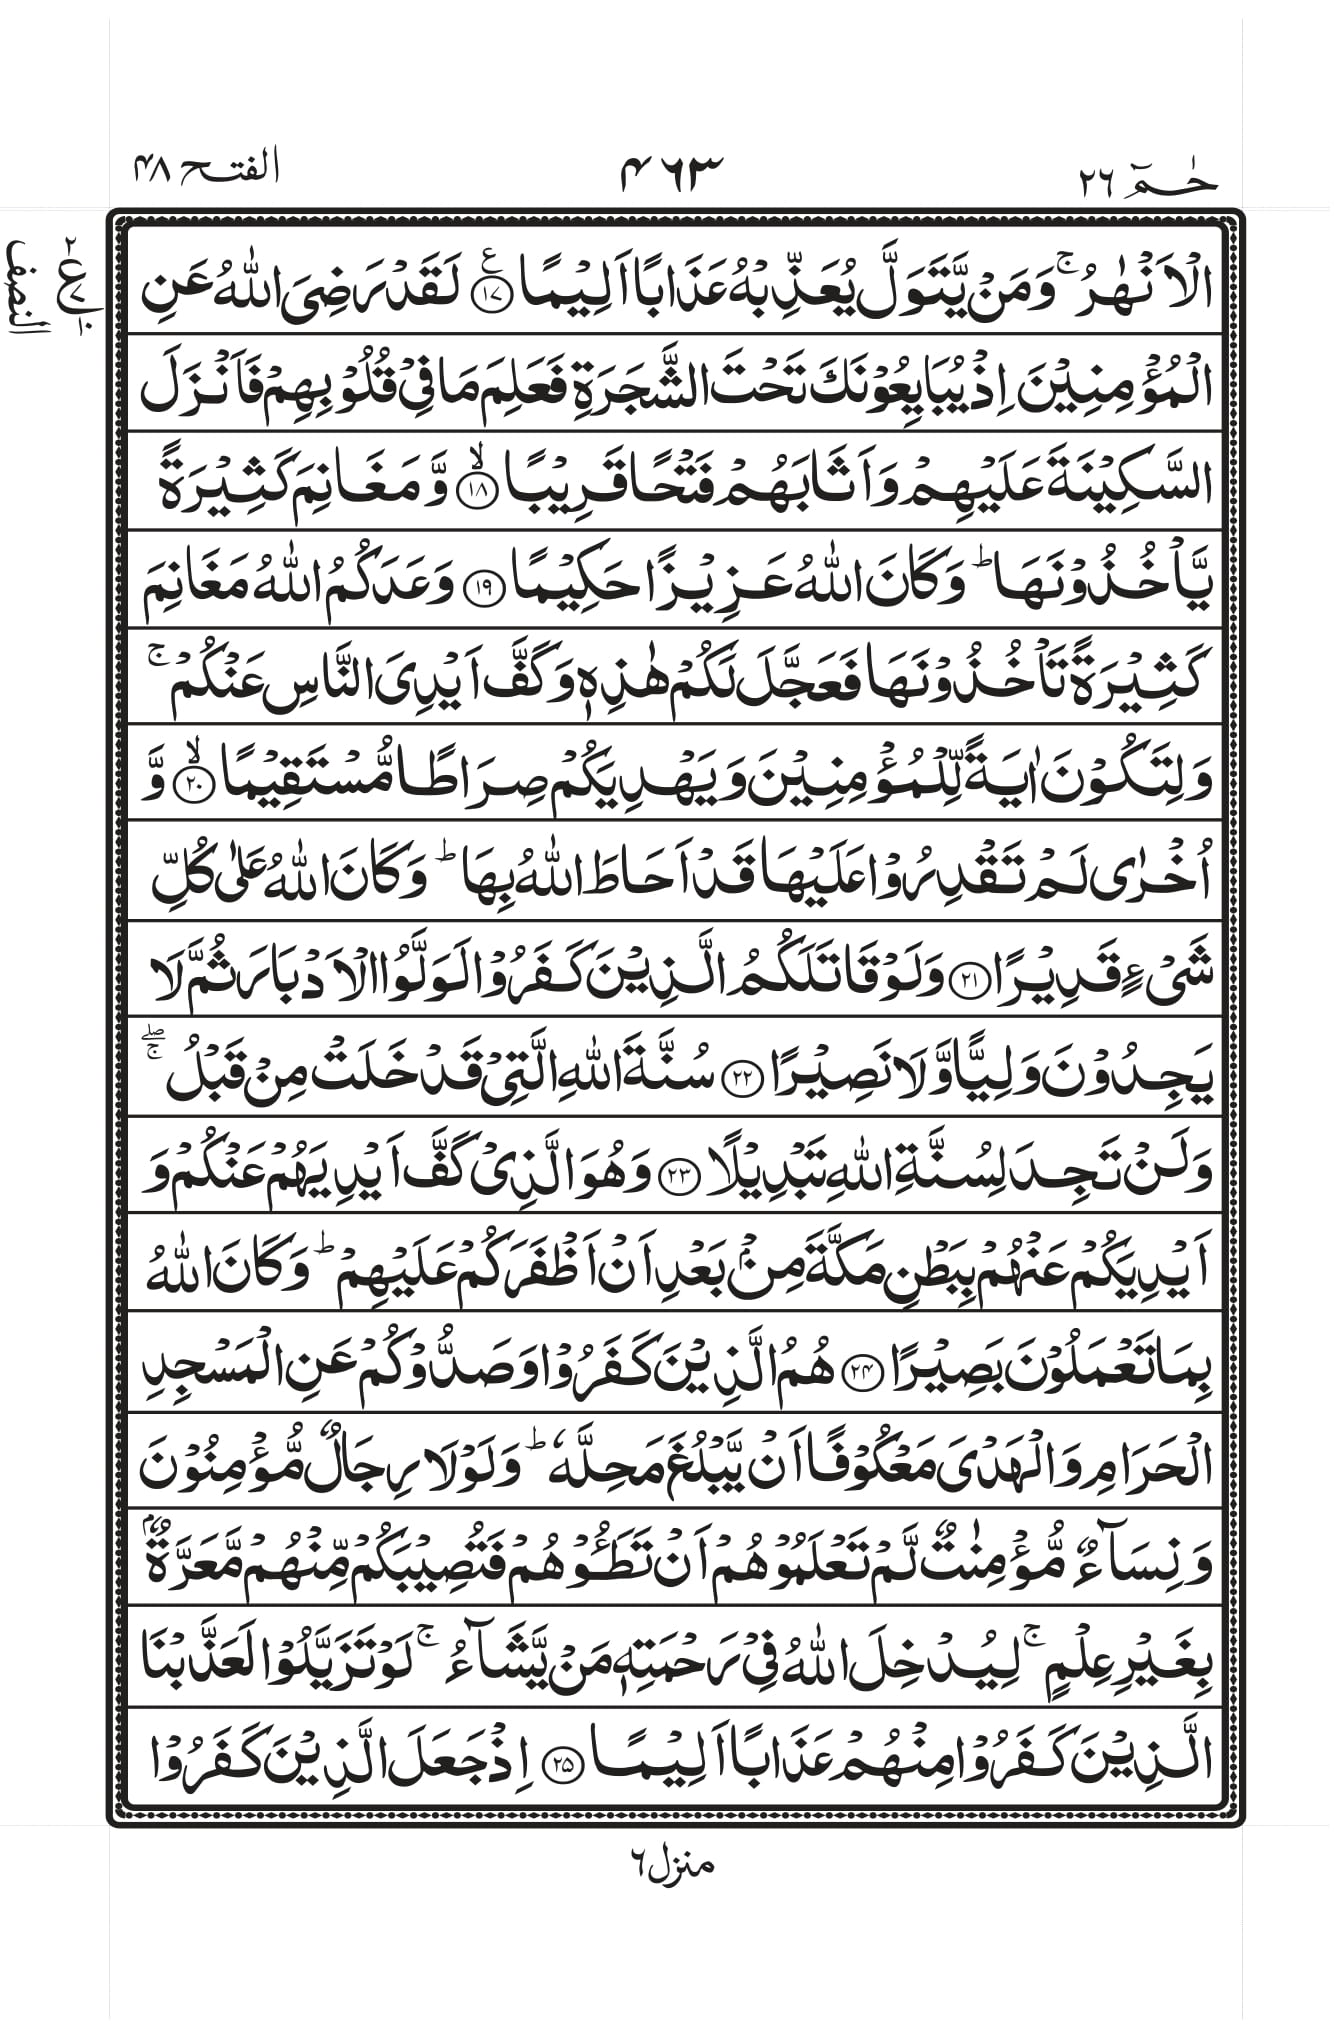 حٰـمٓ ۲٦
۴٦۳
الفتح ۴۸
الۡاَنۡهٰرُ ۚ وَمَنۡ يَّتَوَلَّ يُعَذِّبۡهُ عَذَابًا اَلِيۡمًا ﴿۱۷﴾ ع لَقَدۡ رَضِىَ اللّٰهُ عَنِ
۲ ع ۷ ۱۰
النصف
الۡمُؤۡمِنِيۡنَ اِذۡ يُبَايِعُوۡنَكَ تَحۡتَ الشَّجَرَةِ فَعَلِمَ مَا فِىۡ قُلُوۡبِهِمۡ فَاَنۡزَلَ
السَّكِيۡنَةَ عَلَيۡهِمۡ وَاَثَابَهُمۡ فَتۡحًا قَرِيۡبًا ۙ‏﴿۱۸﴾ وَّمَغَانِمَ كَثِيۡرَةً
يَّاۡخُذُوۡنَهَا ؕ وَكَانَ اللّٰهُ عَزِيۡزًا حَكِيۡمًا ﴿۱۹﴾ وَعَدَكُمُ اللّٰهُ مَغَانِمَ
كَثِيۡرَةً تَاۡخُذُوۡنَهَا فَعَجَّلَ لَكُمۡ هٰذِهٖ وَكَفَّ اَيۡدِىَ النَّاسِ عَنۡكُمۡ ۚ
وَلِتَكُوۡنَ اٰيَةً لِّلۡمُؤۡمِنِيۡنَ وَيَهۡدِيَكُمۡ صِرَاطًا مُّسۡتَقِيۡمًا ۙ‏﴿۲۰﴾ وَّ
اُخۡرٰى لَمۡ تَقۡدِرُوۡا عَلَيۡهَا قَدۡ اَحَاطَ اللّٰهُ بِهَا ؕ وَكَانَ اللّٰهُ عَلٰى كُلِّ
شَىۡءٍ قَدِيۡرًا ﴿۲۱﴾ وَلَوۡ قَاتَلَكُمُ الَّذِيۡنَ كَفَرُوۡا لَوَلَّوُا الۡاَدۡبَارَ ثُمَّ لَا
يَجِدُوۡنَ وَلِيًّا وَّلَا نَصِيۡرًا ﴿۲۲﴾ سُنَّةَ اللّٰهِ الَّتِىۡ قَدۡ خَلَتۡ مِنۡ قَبۡلُ ۖۚ
وَلَنۡ تَجِدَ لِسُنَّةِ اللّٰهِ تَبۡدِيۡلًا ﴿۲۳﴾ وَهُوَ الَّذِىۡ كَفَّ اَيۡدِيَهُمۡ عَنۡكُمۡ وَ
اَيۡدِيَكُمۡ عَنۡهُمۡ بِبَطۡنِ مَكَّةَ مِنۡۢ بَعۡدِ اَنۡ اَظۡفَرَكُمۡ عَلَيۡهِمۡ ؕ وَكَانَ اللّٰهُ
بِمَا تَعۡمَلُوۡنَ بَصِيۡرًا ﴿۲۴﴾ هُمُ الَّذِيۡنَ كَفَرُوۡا وَصَدُّوۡكُمۡ عَنِ الۡمَسۡجِدِ
الۡحَرَامِ وَالۡهَدۡىَ مَعۡكُوۡفًا اَنۡ يَّبۡلُغَ مَحِلَّهٗ ؕ وَلَوۡلَا رِجَالٌ مُّؤۡمِنُوۡنَ
وَنِسَآءٌ مُّؤۡمِنٰتٌ لَّمۡ تَعۡلَمُوۡهُمۡ اَنۡ تَطَـُٔوۡهُمۡ فَتُصِيۡبَكُمۡ مِّنۡهُمۡ مَّعَرَّةٌۢ
بِغَيۡرِ عِلۡمٍ ۚ لِيُدۡخِلَ اللّٰهُ فِىۡ رَحۡمَتِهٖ مَنۡ يَّشَآءُ ۚ لَوۡ تَزَيَّلُوۡا لَعَذَّبۡنَا
الَّذِيۡنَ كَفَرُوۡا مِنۡهُمۡ عَذَابًا اَلِيۡمًا ﴿۲۵﴾ اِذۡ جَعَلَ الَّذِيۡنَ كَفَرُوۡا
منزل ٦